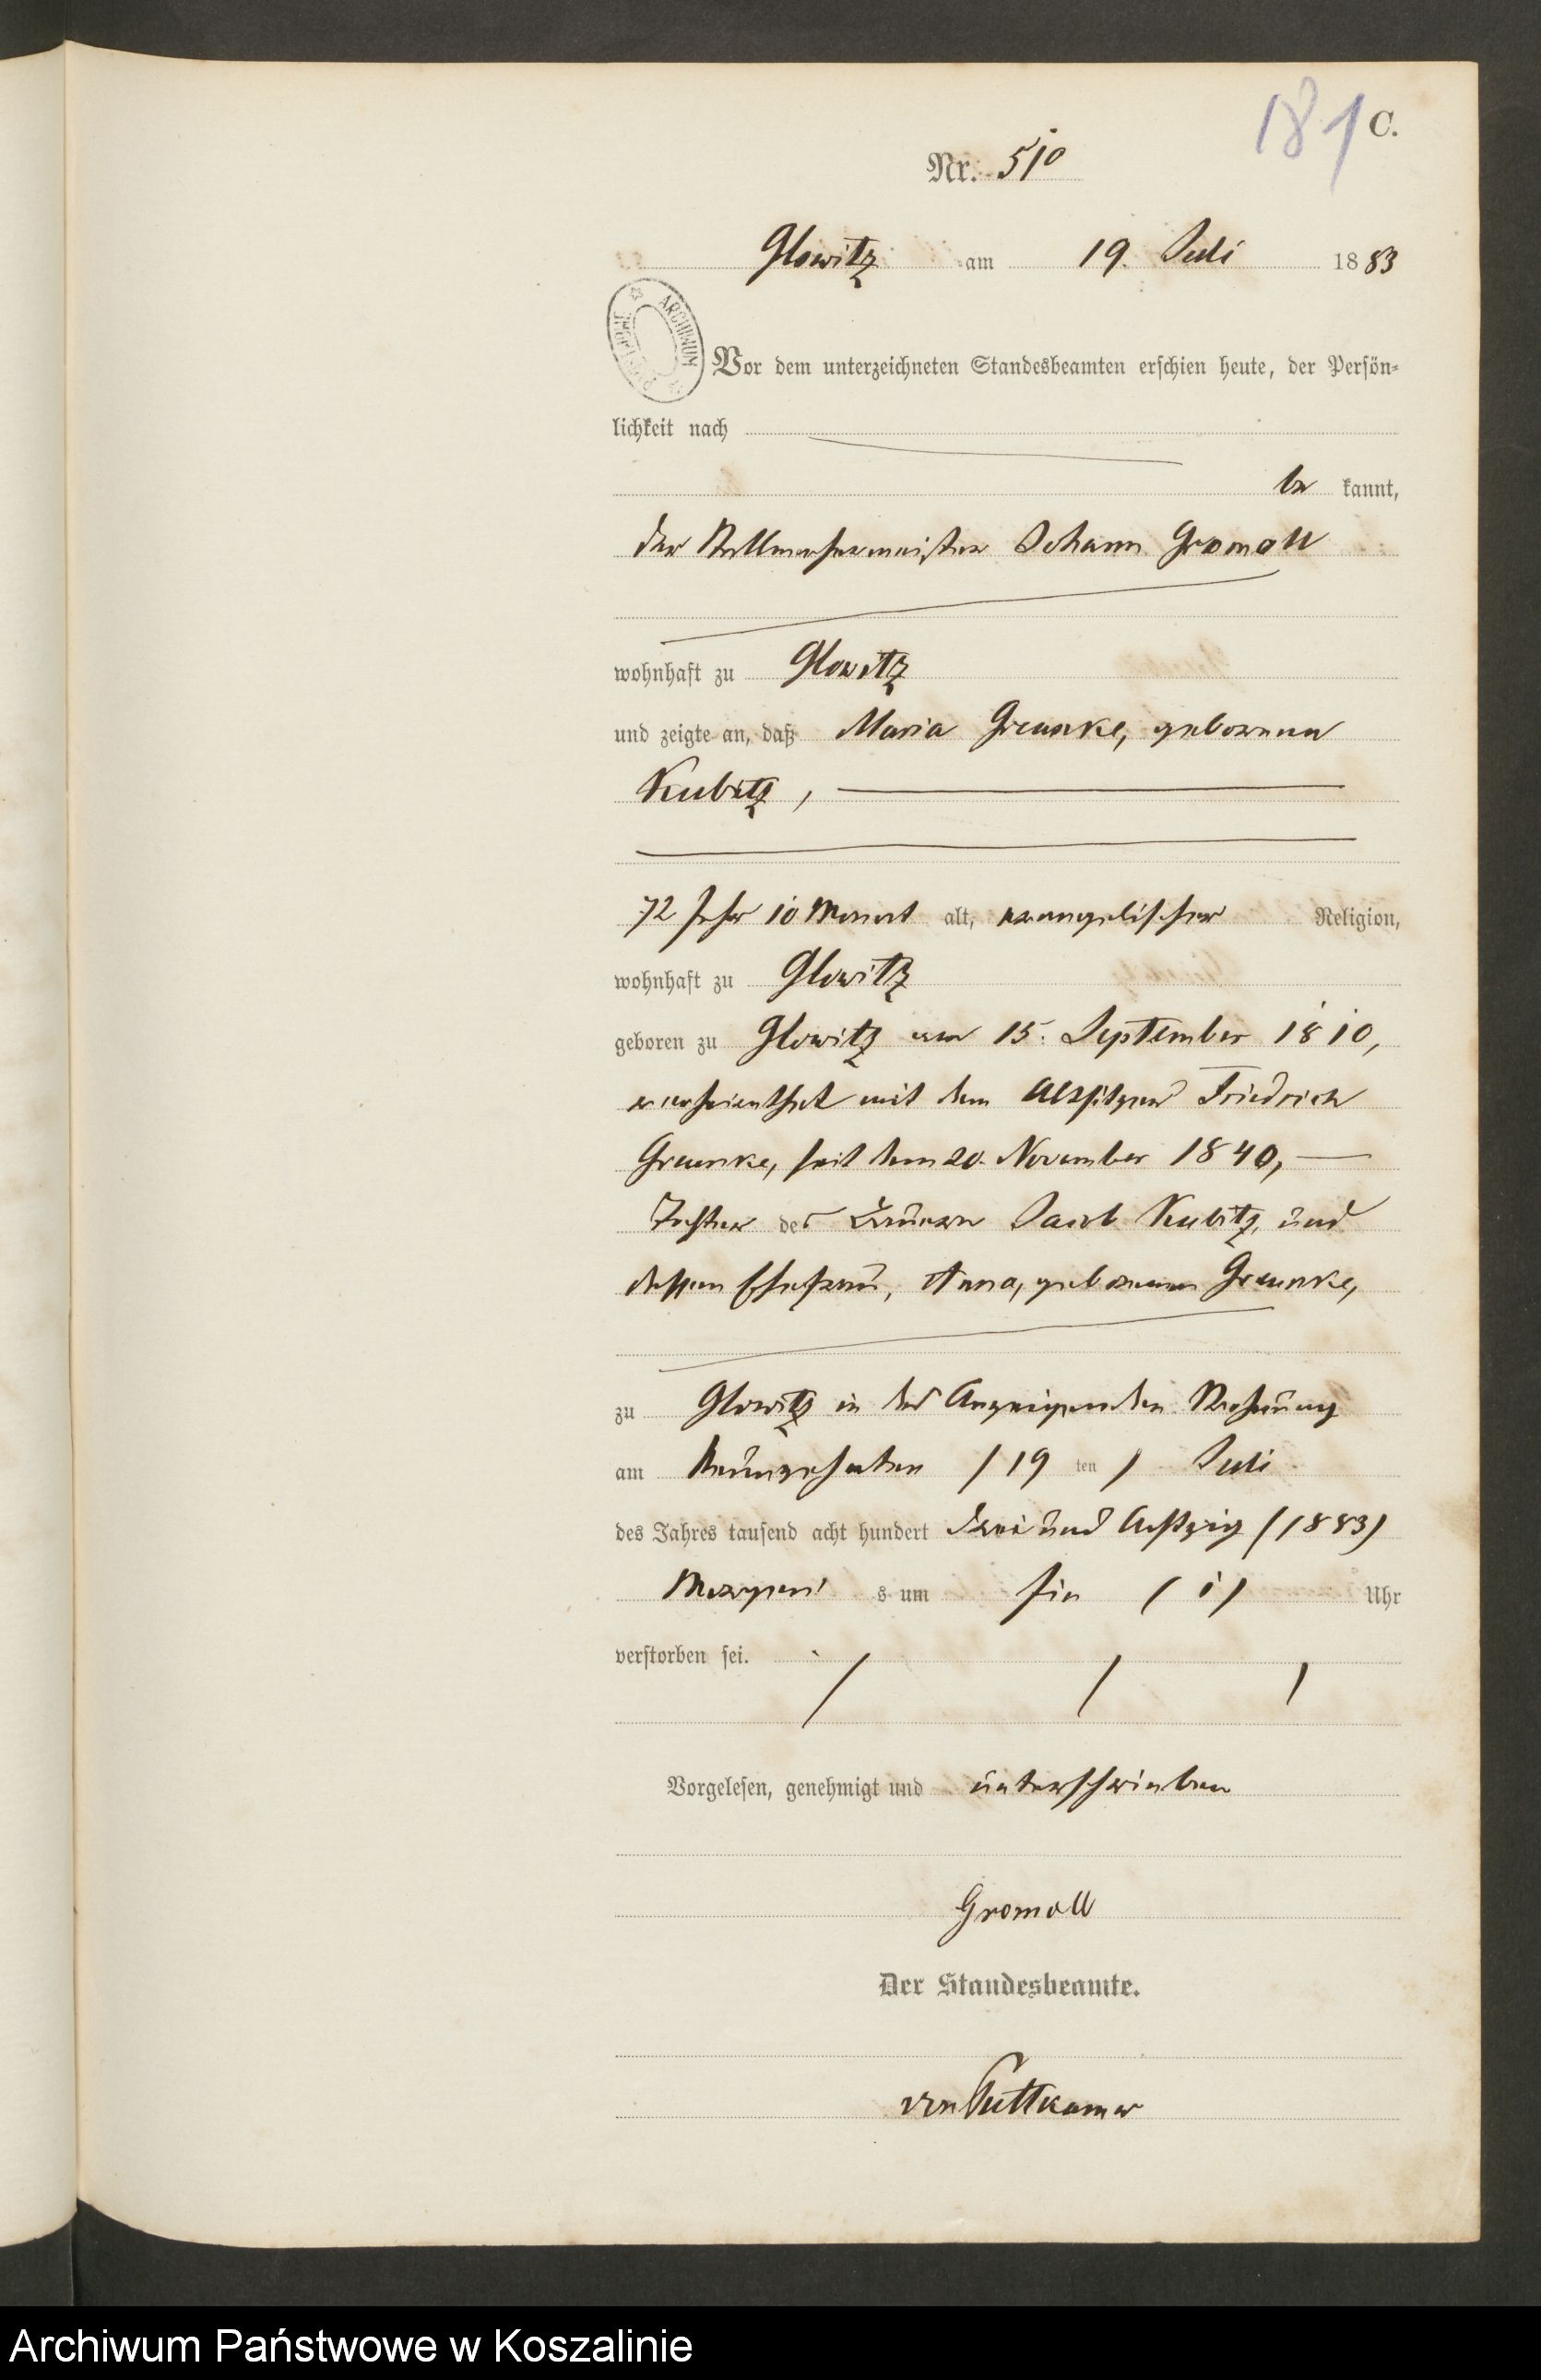 181 C.
Nr. 510
Glowitz am 19. Juli 1883
ARCHIWUM
Vor dem unterzeichneten Standesbeamten erschien heute, der Persön-
lichkeit nach
be kannt,
der Stellmachermeister Johann Gromoll
wohnhaft zu Glowitz
und zeigte an, daß Maria Graunke, geborene
Kubitz,
72 Jahr 10 Monat alt, evangelischer Religion,
wohnhaft zu Glowitz
geboren zu Glowitz am 15. September 1810,
verheirathet mit dem Altsitzer Friedrich
Graunke, seit dem 20. November 1840,
Tochter des Bauern Jacob Kubitz, und
dessen Ehefrau, Anna, geborenen Graunke,
zu Glowitz in des Anzeigenden Wohnung
am Neunzehnten (19 ten) Juli
des Jahres tausend acht hundert drei und Achtzig (1883)
Morgens um Ein (1) Uhr
verstorben sei.
Vorgelesen, genehmigt und unterschrieben
Gromoll
Der Standesbeamte.
von Puttkamer
Archiwum Państwowe w Koszalinie